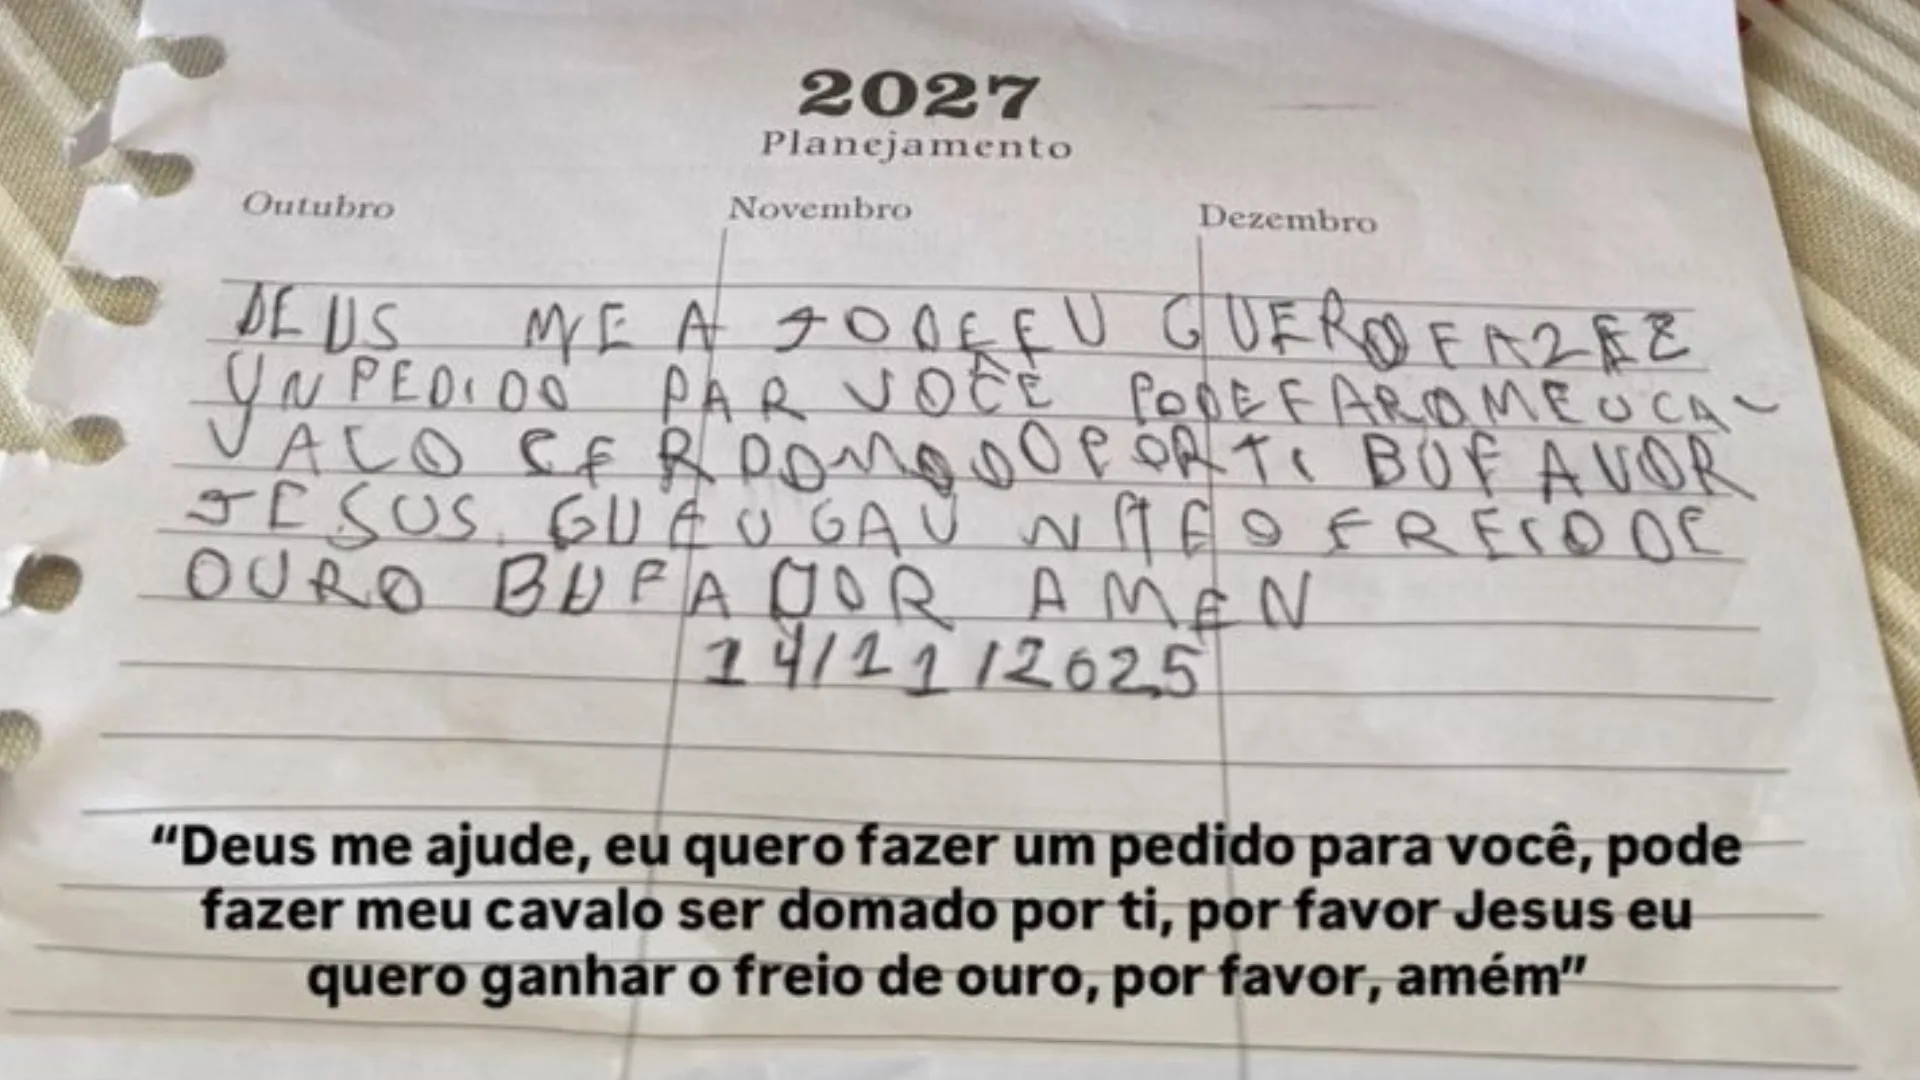 2027
Planejamento
Outubro Novembro Dezembro
DEUS ME A JODE EU GUERO FAZEZ
UN PEDIDO PAR VOCÊ PODE FAR O MEU CA-
VALO CER DOMODO POR TI BUFAVOR
JESUS. GU EU GAU NHE O FREIO DE
OURO BUFAUOR AMEN
14/11/2025
“Deus me ajude, eu quero fazer um pedido para você, pode
fazer meu cavalo ser domado por ti, por favor Jesus eu
quero ganhar o freio de ouro, por favor, amém”